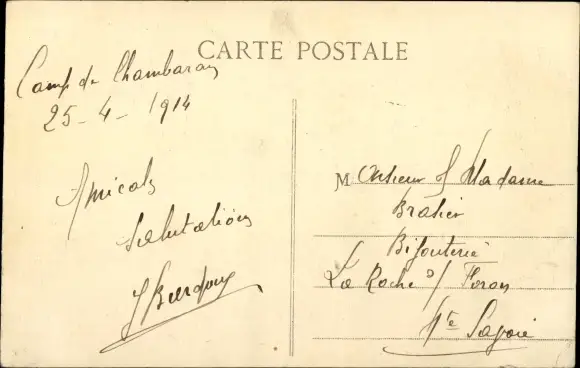 CARTE POSTALE
Camp de Chambaran
25-4-1914
Amicales
Salutations
Monsieur & Madame
Brasier
Bijouterie
La Roche s/ Foron
Hte Savoie